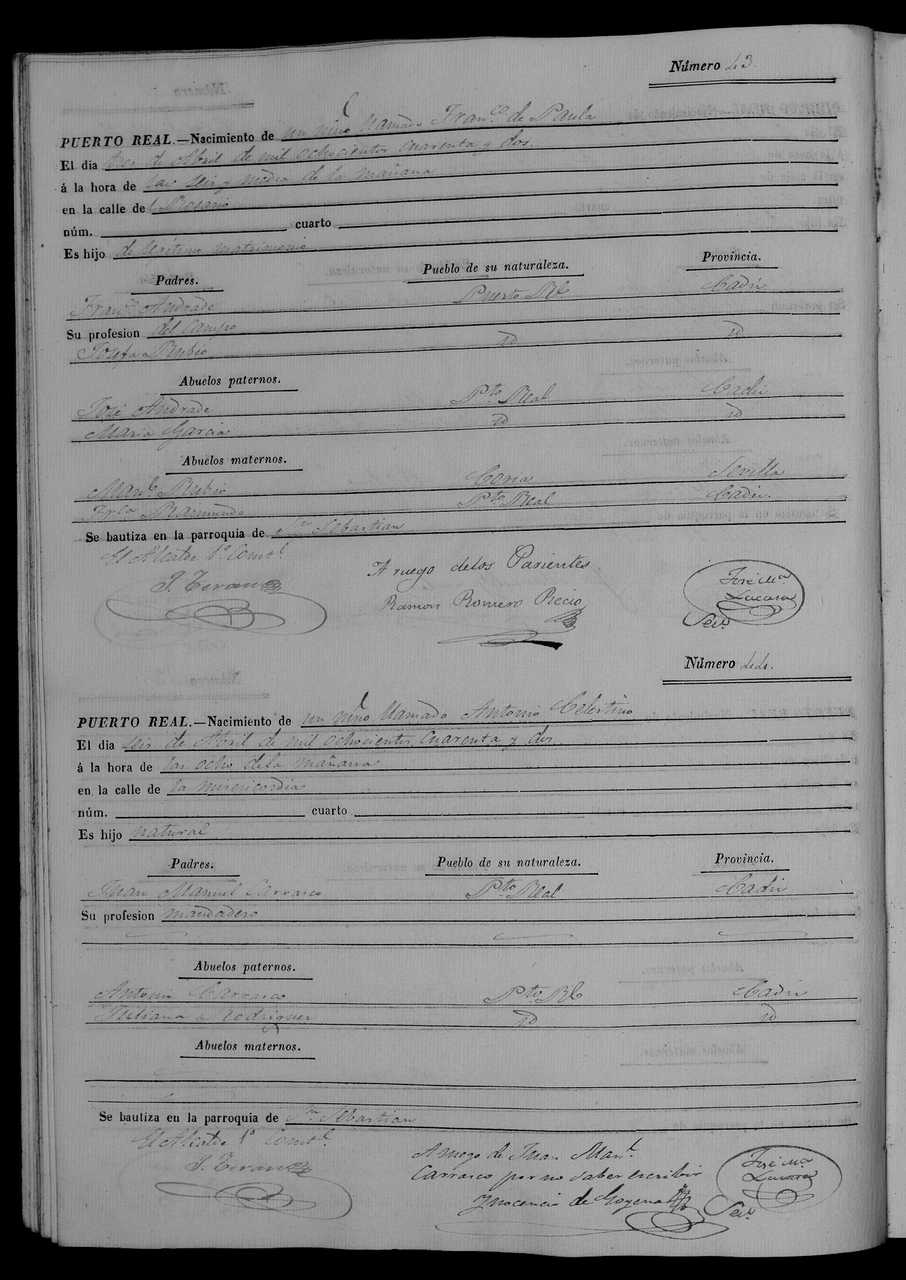 Número 43.
PUERTO REAL.—Nacimiento de un niño llamado Fran.co de Paula
El dia tres de Abril de mil ochocientos cuarenta y dos
á la hora de las seis y media de la mañana
en la calle del Rosario
núm. cuarto
Es hijo de lejitimo matrimonio
Padres. Pueblo de su naturaleza. Provincia.
Fran.co Andrade Puerto Rl Cadiz
Su profesion del campo
Josefa Rubio id id
Abuelos paternos.
José Andrade Pto Real Cadiz
Maria Garcia id id
Abuelos maternos.
Man.l Rubio Coria Sevilla
Fr.ca Raimundo Pto Real Cadiz
Se bautiza en la parroquia de Sn Sebastian
El Alcalde 1º Const.l
J. Teran
A ruego de los Parientes
Ramon Romero Recio
José Ma
Srio.
Número 44.
PUERTO REAL.—Nacimiento de un niño llamado Antonio Celestino
El dia seis de Abril de mil ochocientos cuarenta y dos
á la hora de las ocho de la mañana
en la calle de la misericordia
núm. cuarto
Es hijo natural
Padres. Pueblo de su naturaleza. Provincia.
Juan Manuel Carrasco Pto Real Cadiz
Su profesion mandadero
Abuelos paternos.
Antonio Carrasco Pto Rl Cadiz
Juliana Rodriguez id id
Abuelos maternos.
Se bautiza en la parroquia de Sn Sebastian
El Alcalde 1º Const.l
J. Teran
A ruego de Juan Man.l
Carrasco por no saber escribir
Ynocencio de Goyena
José Ma
Srio.